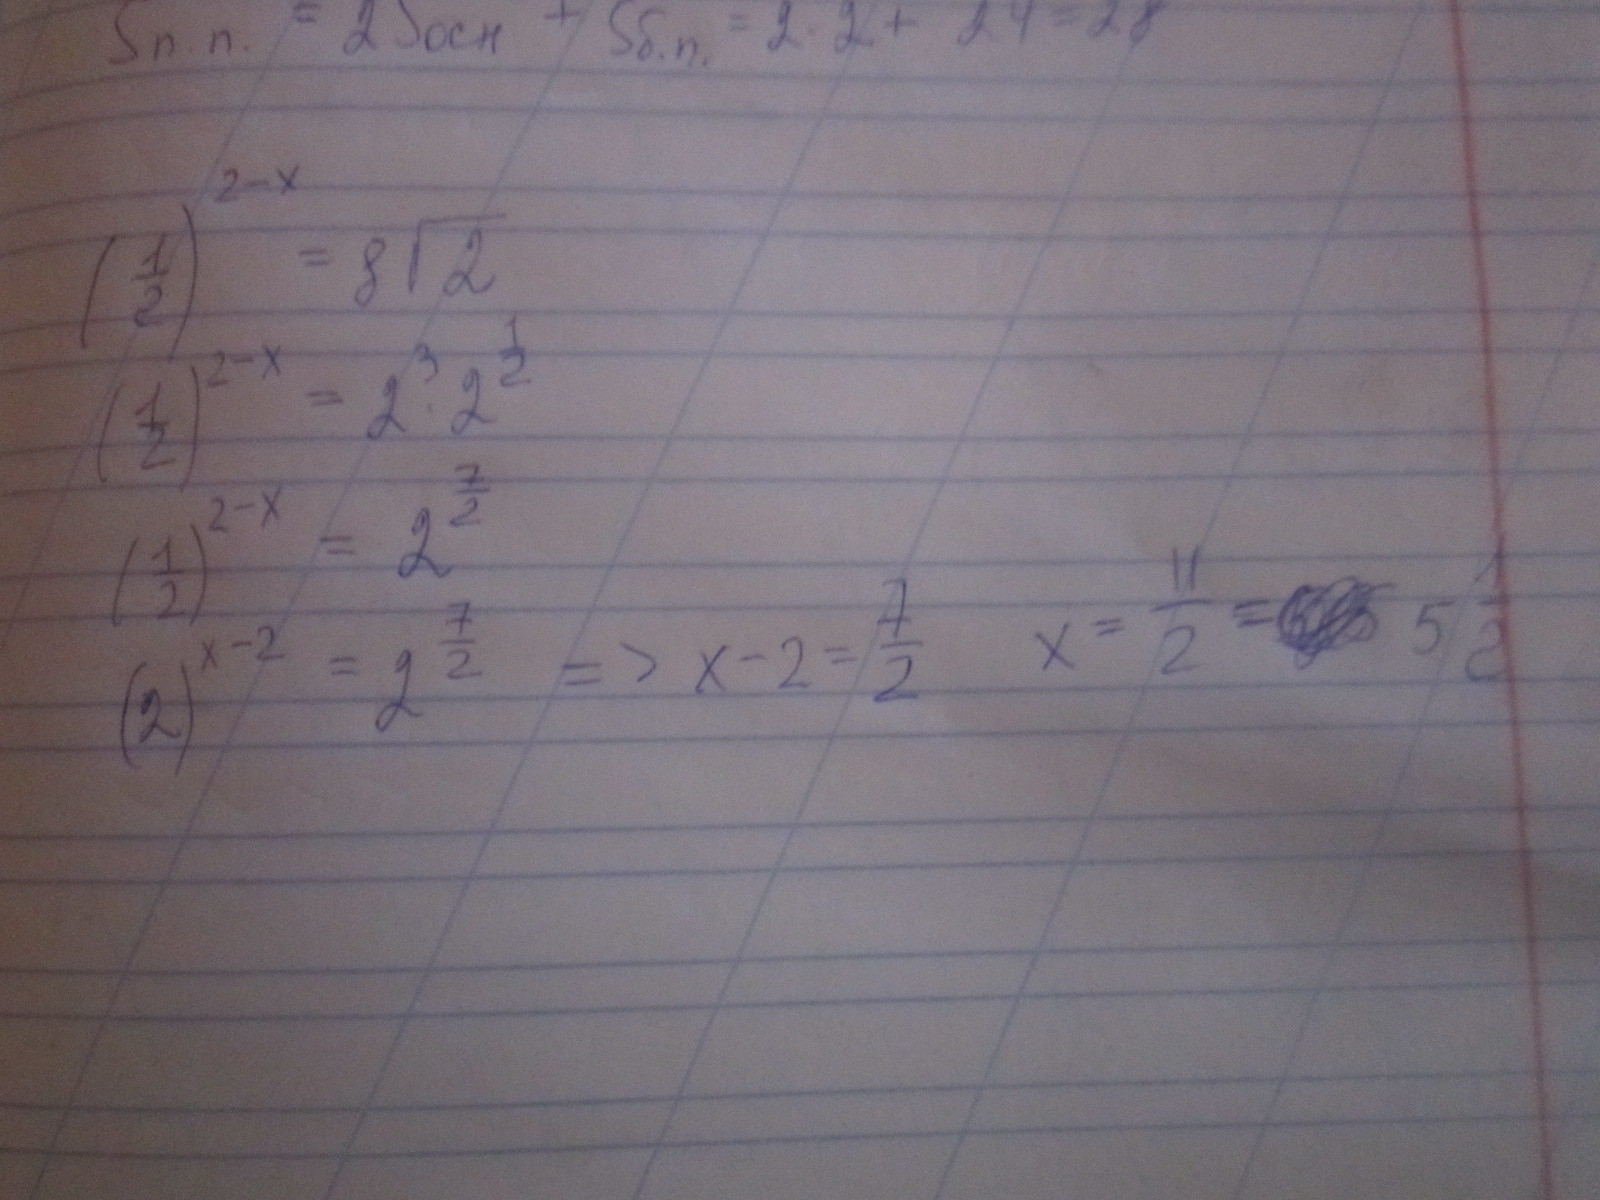 Sп.п. = 2Sосн + Sб.п. = 2·2 + 24 = 28
(1/2)^(2-x) = 8√2
(1/2)^(2-x) = 2^3 · 2^(1/2)
(1/2)^(2-x) = 2^(7/2)
(2)^(x-2) = 2^(7/2) => x-2 = 7/2 x = 11/2 = 5 1/2